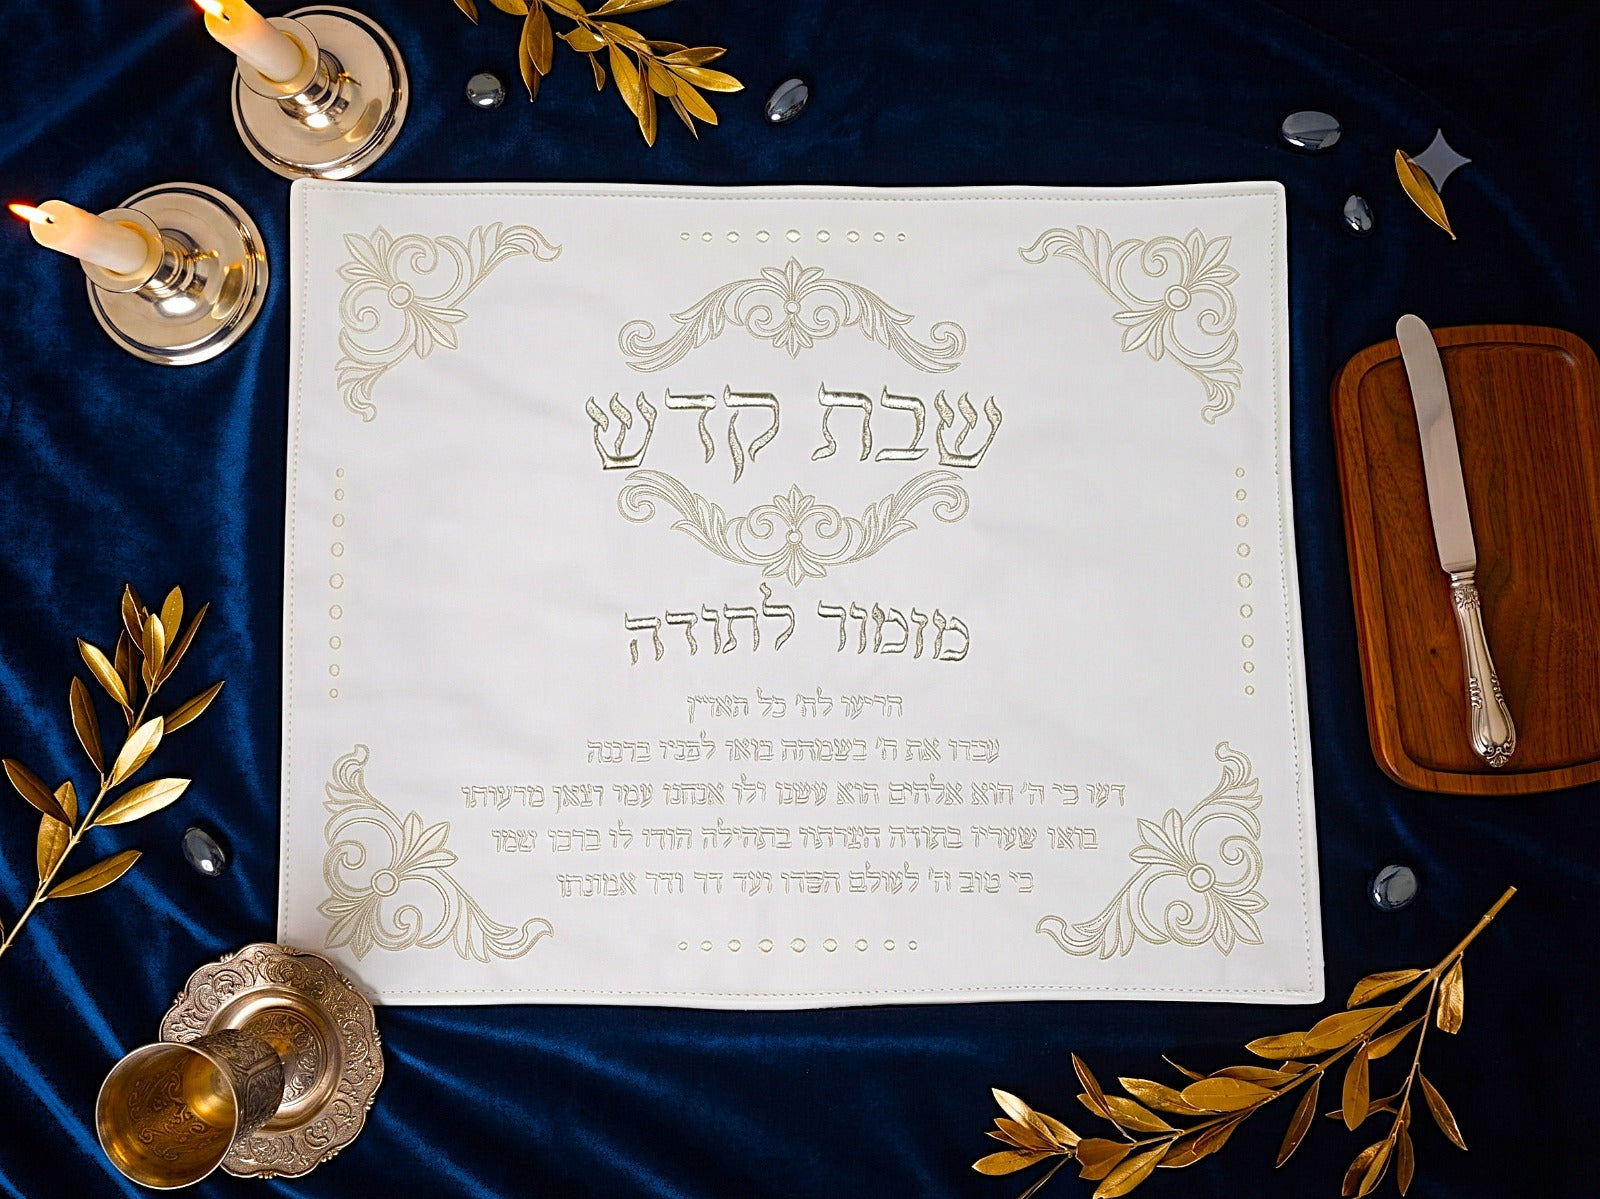 שבת קדש
מזמור לתודה
הריעו לה' כל הארץ
עבדו את ה' בשמחה בואו לפניו ברננה
דעו כי ה' הוא אלהים הוא עשנו ולו אנחנו עמו וצאן מרעיתו
בואו שעריו בתודה חצרתיו בתהילה הודו לו ברכו שמו
כי טוב ה' לעולם חסדו ועד דר ודר אמונתו